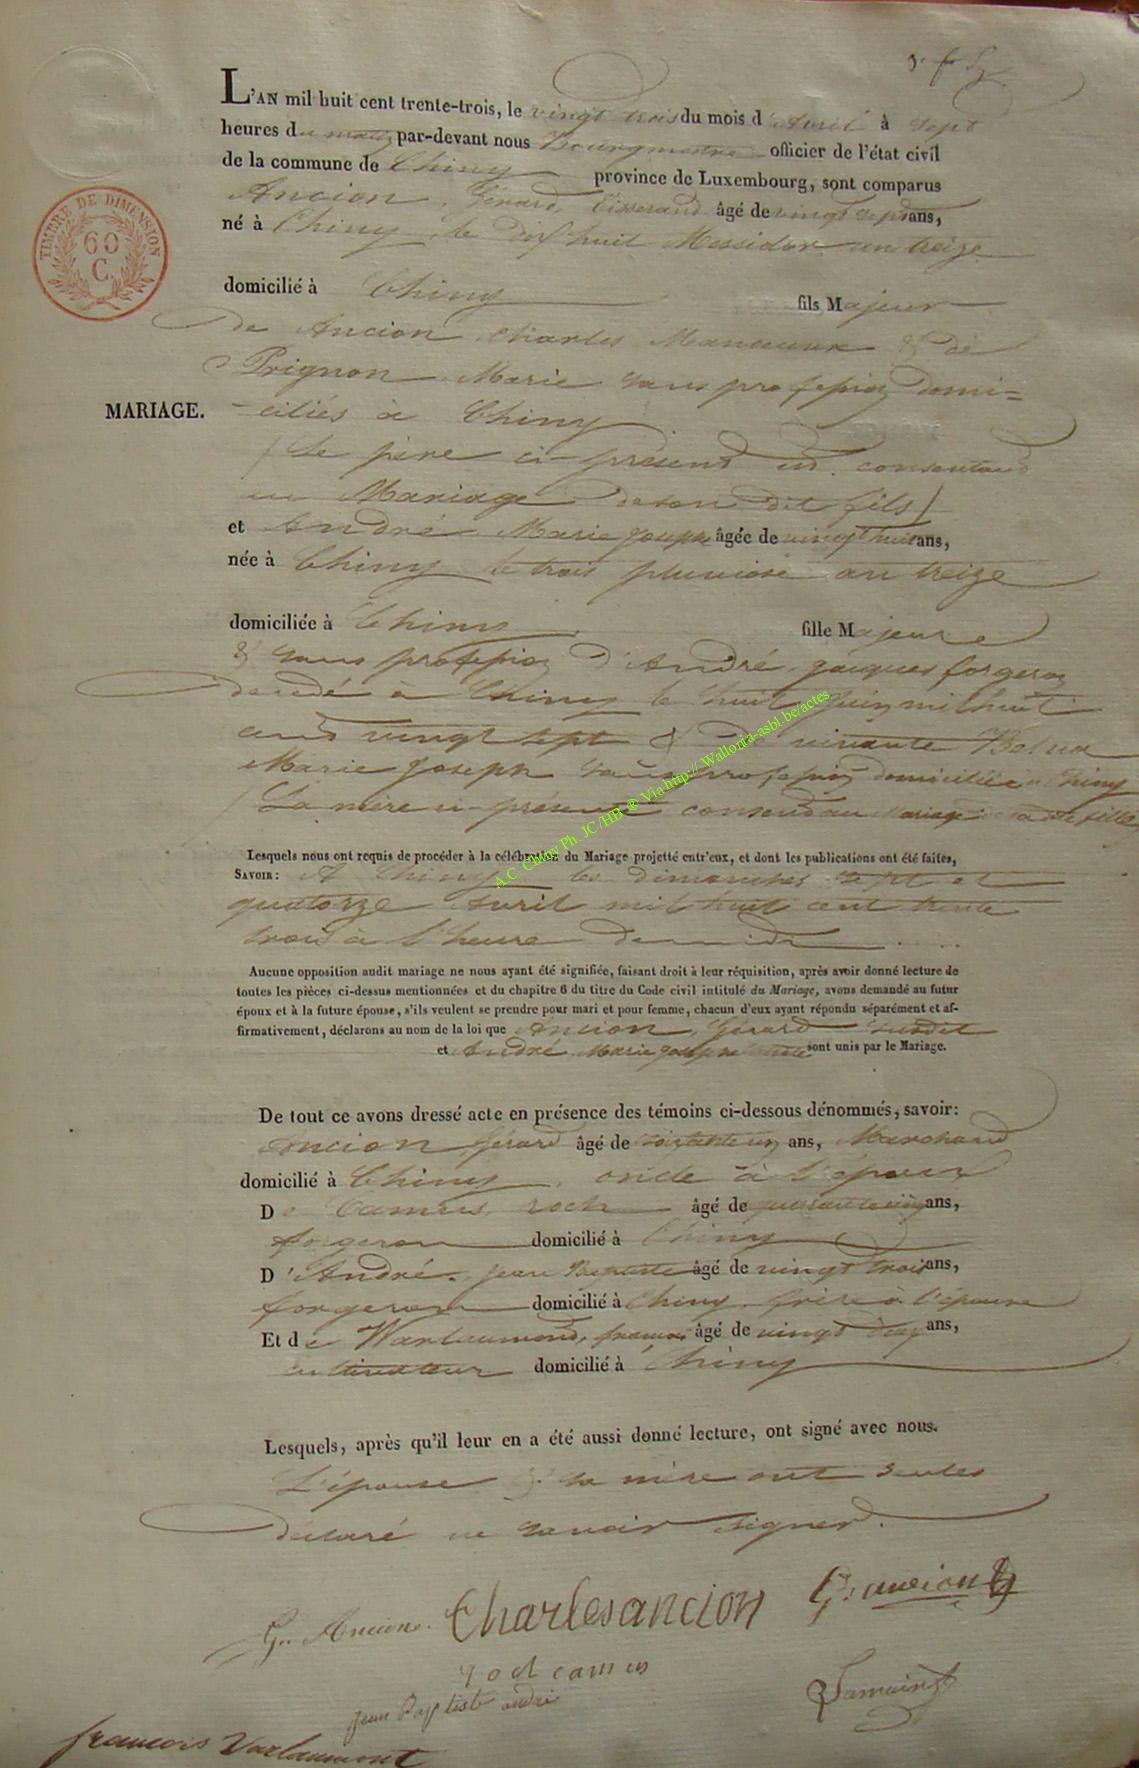 L'AN mil huit cent trente-trois, le vingt trois du mois d'avril à sept
heures du matin par-devant nous Bourgmestre officier de l'état civil
de la commune de Chiny province de Luxembourg, sont comparus
Ancion, Gérard, tisserand âgé de vingt sept ans,
né à Chiny, le dix huit Messidor an treize
domicilié à Chiny fils Majeur
de Ancion Charles Manoeuvre & de
Prignon Marie sans profession domi=
MARIAGE.
-ciliés à Chiny
(Le père ci-présent et consentant
au Mariage de son dit fils)
et André Marie Joseph âgée de vingt huit ans,
née à Chiny le trois pluviose an treize
domiciliée à Chiny fille Majeure
& sans profession d'André Jacques forgeron
décédé à Chiny le huit juin mil huit
cent vingt sept & de vivante
Marie Joseph sans profession domiciliée à Chiny
La mère ci-présente consent au Mariage de sa dite fille
Lesquels nous ont requis de procéder à la célébration du Mariage projetté entr'eux, et dont les publications ont été faites,
SAVOIR: A Chiny les dimanches sept et
quatorze Avril mil huit cent trente
trois à l'heure de midi
Aucune opposition audit mariage ne nous ayant été signifiée, faisant droit à leur réquisition, après avoir donné lecture de
toutes les pièces ci-dessus mentionnées et du chapitre 6 du titre du Code civil intitulé du Mariage, avons demandé au futur
époux et à la future épouse, s'ils veulent se prendre pour mari et pour femme, chacun d'eux ayant répondu séparément et af-
firmativement, déclarons au nom de la loi que Ancion, Gérard susdit
et André Marie Joseph sont unis par le Mariage.
De tout ce avons dressé acte en présence des témoins ci-dessous dénommés, savoir:
Ancion, Gérard âgé de soixante un ans, Marchand
domicilié à Chiny, oncle à l'époux
De Camus, roch âgé de quarante cinq ans,
forgeron domicilié à Chiny
D'André, Jean Baptiste âgé de vingt trois ans,
forgeron domicilié à Chiny, frère à l'épouse
Et de Warlaumond, françois âgé de vingt ans,
cultivateur domicilié à Chiny
Lesquels, après qu'il leur en a été aussi donné lecture, ont signé avec nous.
L'épouse & sa mère ont seules
déclaré ne savoir signer.
G. Ancion. Charles ancion G: ancion
roch camus
Jean Baptiste andré
françois Varlaumont
TIMBRE DE DIMENSION
60
C.
A.C. Chiny Ph. JC/HB ® Via http:// Wallonia-asbl.be/actes